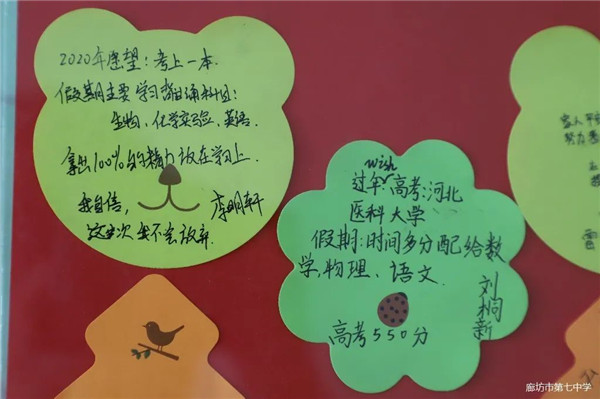 2020年愿望：考上一本.
假期主要学习背诵科目：
生物、化学实验、英语.
拿出100%的精力放在学习上.
我自信，
这次我不会放弃.
李明轩
wish
过年，高考：河北
医科大学
假期：时间多分配给数
学，物理、语文.
高考550分
刘桐新
家人平
努力考
廊坊市第七中学